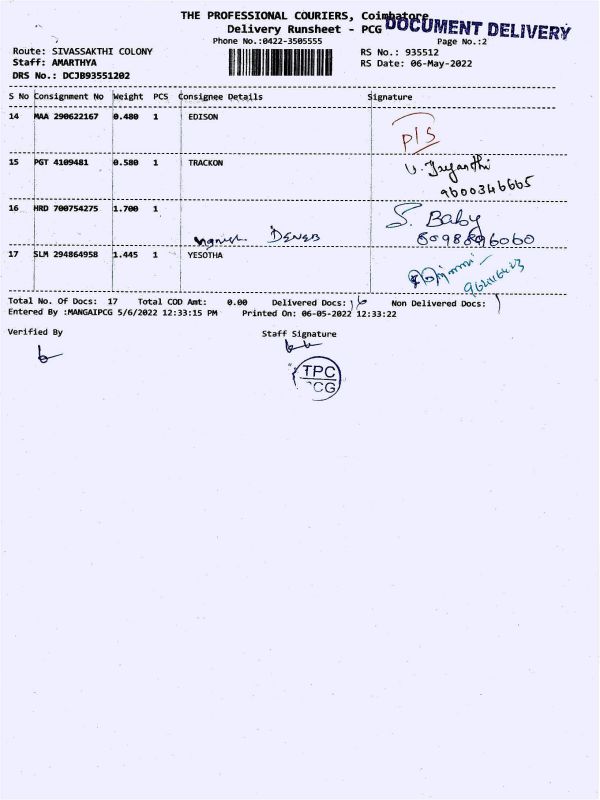 THE PROFESSIONAL COURIERS, Coimbatore
DOCUMENT DELIVERY
Delivery Runsheet - PCG
Phone No.:0422-3505555
Page No.:2
Route: SIVASSAKTHI COLONY
RS No.: 935512
Staff: AMARTHYA
RS Date: 06-May-2022
DRS No.: DCJB93551202
S No Consignment No Weight PCS Consignee Details Signature
14 MAA 290622167 0.480 1 EDISON
P/S
15 PGT 4109481 0.580 1 TRACKON
U. Jayanthi
9600346665
16 HRD 700754275 1.700 1
S. Baby
DENEB 8098896060
17 SLM 294864958 1.445 1 YESOTHA
Total No. Of Docs: 17 Total COD Amt: 0.00 Delivered Docs: 16 Non Delivered Docs: 1
Entered By :MANGAIPCG 5/6/2022 12:33:15 PM Printed On: 06-05-2022 12:33:22
Verified By Staff Signature
TPC
PCG